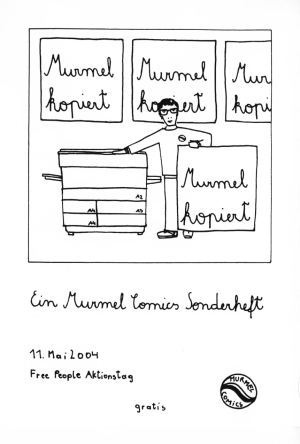 Murmel
kopiert
Murmel
kopiert
Mur
kopi
Murmel
kopiert
A2
A4
A3
A4
Ein Murmel Comics Sonderheft
11. Mai 2004
Free People Aktionstag
gratis
MURMEL
COMICS